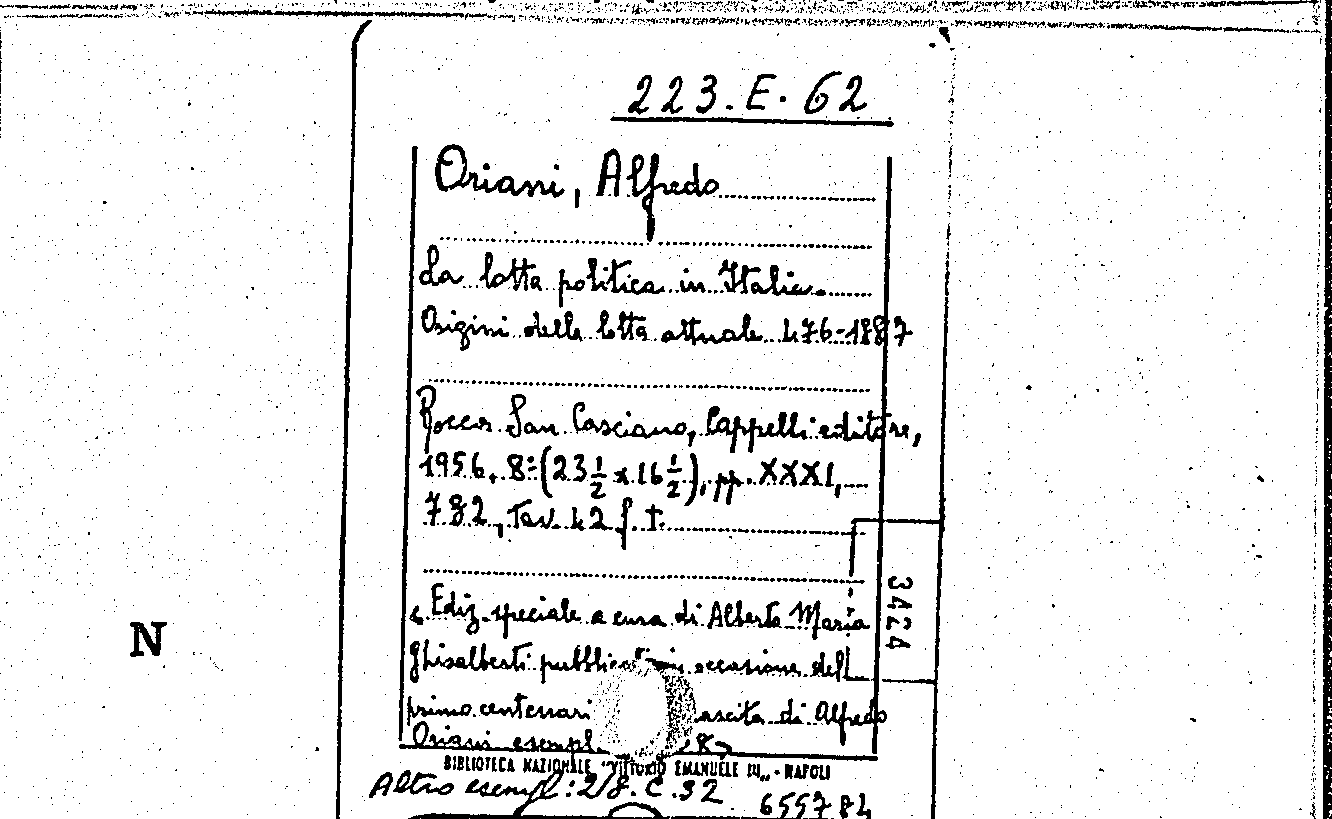 223.E.62
Oriani, Alfredo
La lotta politica in Italia.
Origini della lotta attuale 476-1887
Rocca San Casciano, Cappelli editore,
1956. 8º (23 1/2 x 16 1/2), pp. XXXI,
782, Tav. 42 f. t.
3424
« Ediz. speciale a cura di Alberto Maria
N
Ghisalberti in occasione del
primo centenari ascita di Alfredo
Oriani esempl.
BIBLIOTECA NAZIONALE "VITTORIO EMANUELE III„ - NAPOLI
Altro esempl: 218.C.32
655784